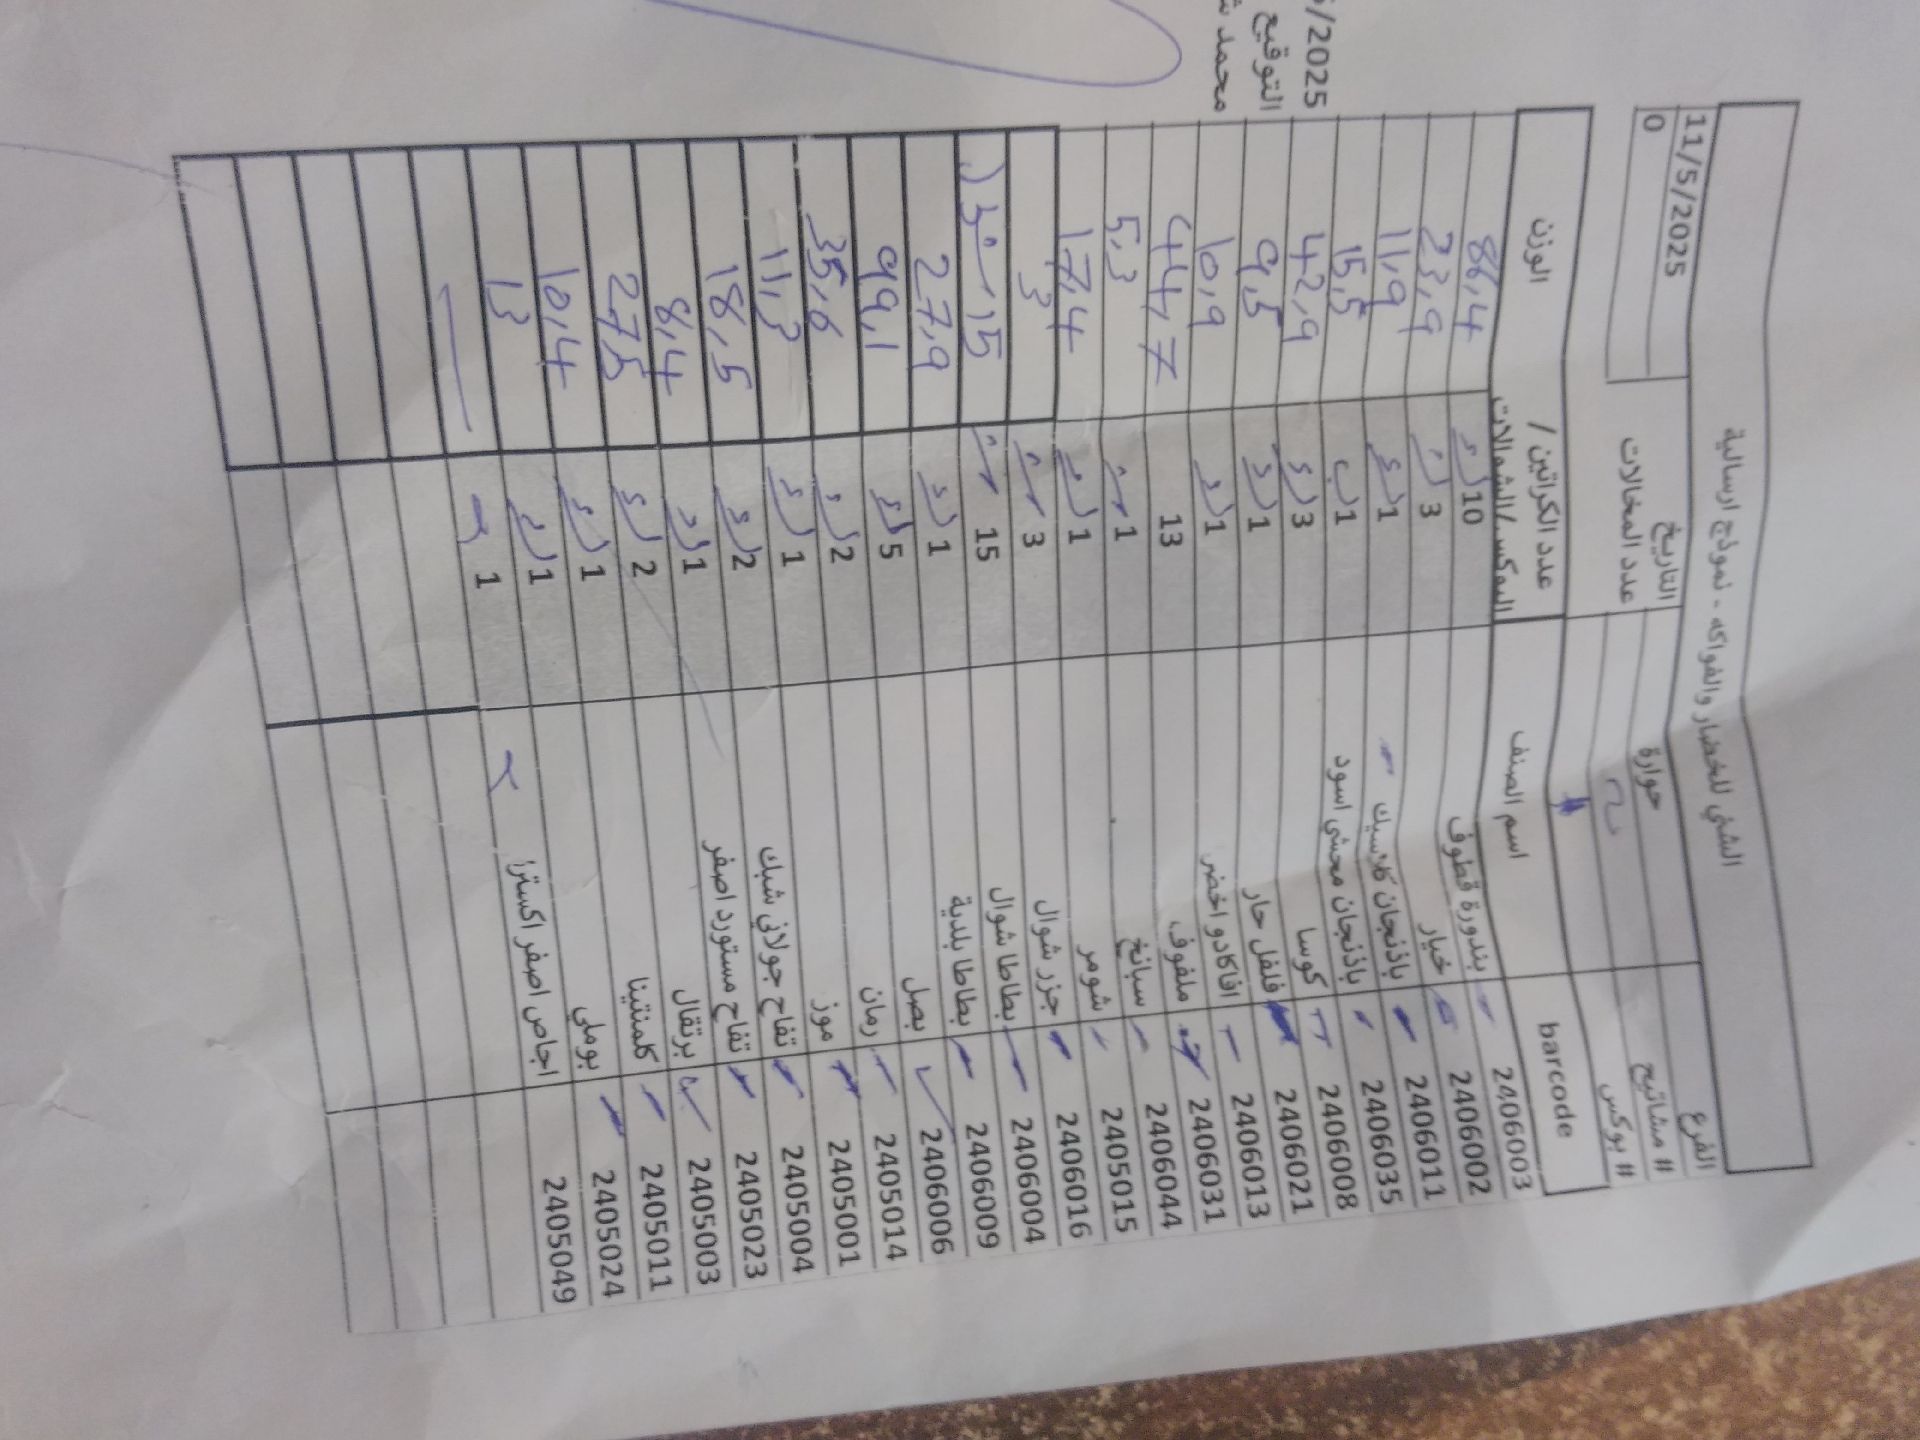 الشني للخضار والفواكه - نموذج ارسالية
الفرع حوارة التاريخ 11/5/2025
# مشاتيح عدد المخالات 0
# بوكس
barcode اسم الصنف عدد الكراتين / البوكس/الشوالات الوزن
2406003 بندورة قطوف 10 86,4
2406002 خيار 3 23,9
2406011 باذنجان كلاسيك 1 11,9
2406035 باذنجان محشي اسود 1 15,5
2406008 كوسا 3 42,9
2406021 فلفل حار 1 9,5
2406013 افاكادو اخضر 1 10,9
2406031 ملفوف 13 44,7
2406044 سبانخ 1 5,3
2405015 شومر 1 17,4
2406016 جزر شوال 3 3
2406004 بطاطا شوال 15 15
2406009 بطاطا بلدية 1 27,9
2406006 بصل 5 99,1
2405014 رمان 2 35,6
2405001 موز 1 11,3
2405004 تفاح جولاني شبك 2 18,5
2405023 تفاح مستورد اصفر 1 8,4
2405003 برتقال 2 27,5
2405011 كلمنتينا 1 10,4
2405024 بوملي 1 13
2405049 اجاص اصفر اكسترا 1
5/2025
التوقيع
محمد